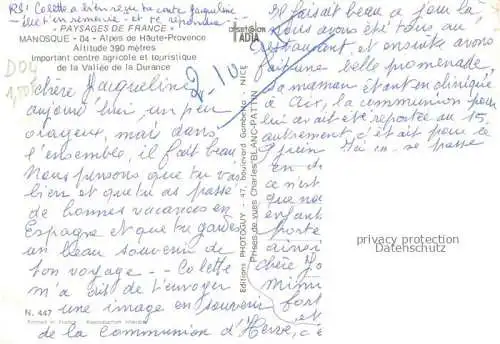 RS: Colette a bien reçu ta carte Jacqueline
elle t'en remercie - et te répondra
"PAYSAGES DE FRANCE"
MANOSQUE - 04 - Alpes de Haute-Provence
Altitude 390 mètres
Important centre agricole et touristique
de la Vallée de la Durance
D04
chère Jacqueline
aujourd'hui un peu
orageux, mais dans
l'ensemble, il fait beau
Nous pensons que tu vas
bien et que tu as passé
de bonnes vacances en
Espagne et que tu gardes
un beau souvenir de
ton voyage - - Colette
m'a dit de t'envoyer
une image en souvenir
de la communion d'Hervé,
N. 447
Printed in France Reproduction interdite
ADIA
Editions PHOTOGUY - 47, boulevard Gambetta - NICE
Prises de vues Charles BLANC-PATTIN
il faisait beau a jour là
nous avons été tous au
restaurant, et ensuite avons
fait une belle promenade
sa maman étant en clinique
à Aix, la communion pour
lui avait été reportée au 15,
autrement c'était pour le
juin se passe
en
ce n'est
que
enfant
porte
ainsi
chère
Mimi
fort
et
privacy protection
Datenschutz